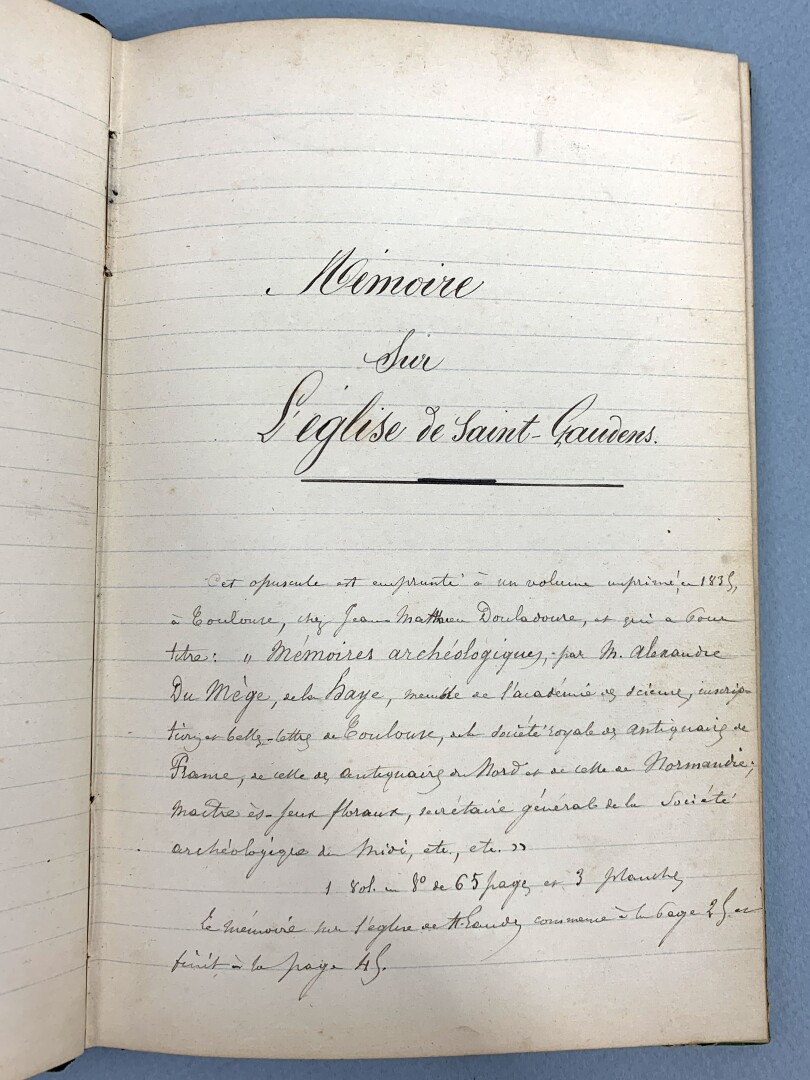 Mémoire
Sur
L'église de Saint-Gaudens.
Cet opuscule est emprunté à un volume imprimé, en 1835,
à Toulouse, chez Jean-Matthieu Douladoure, et qui a pour
titre : " Mémoires archéologiques, par M. Alexandre
Du Mège, de la Haye, membre de l'académie des sciences, inscrip-
tions et belles-lettres de Toulouse, de la société royale des antiquaires de
France, de celle des antiquaires du Nord et de celle de Normandie;
maître ès-jeux floraux, secrétaire général de la Société
archéologique du Midi, etc., etc. "
1 vol. in 8° de 65 pages et 3 planches
Le mémoire sur l'église de St Gaudens commence à la page 25 et
finit à la page 45.